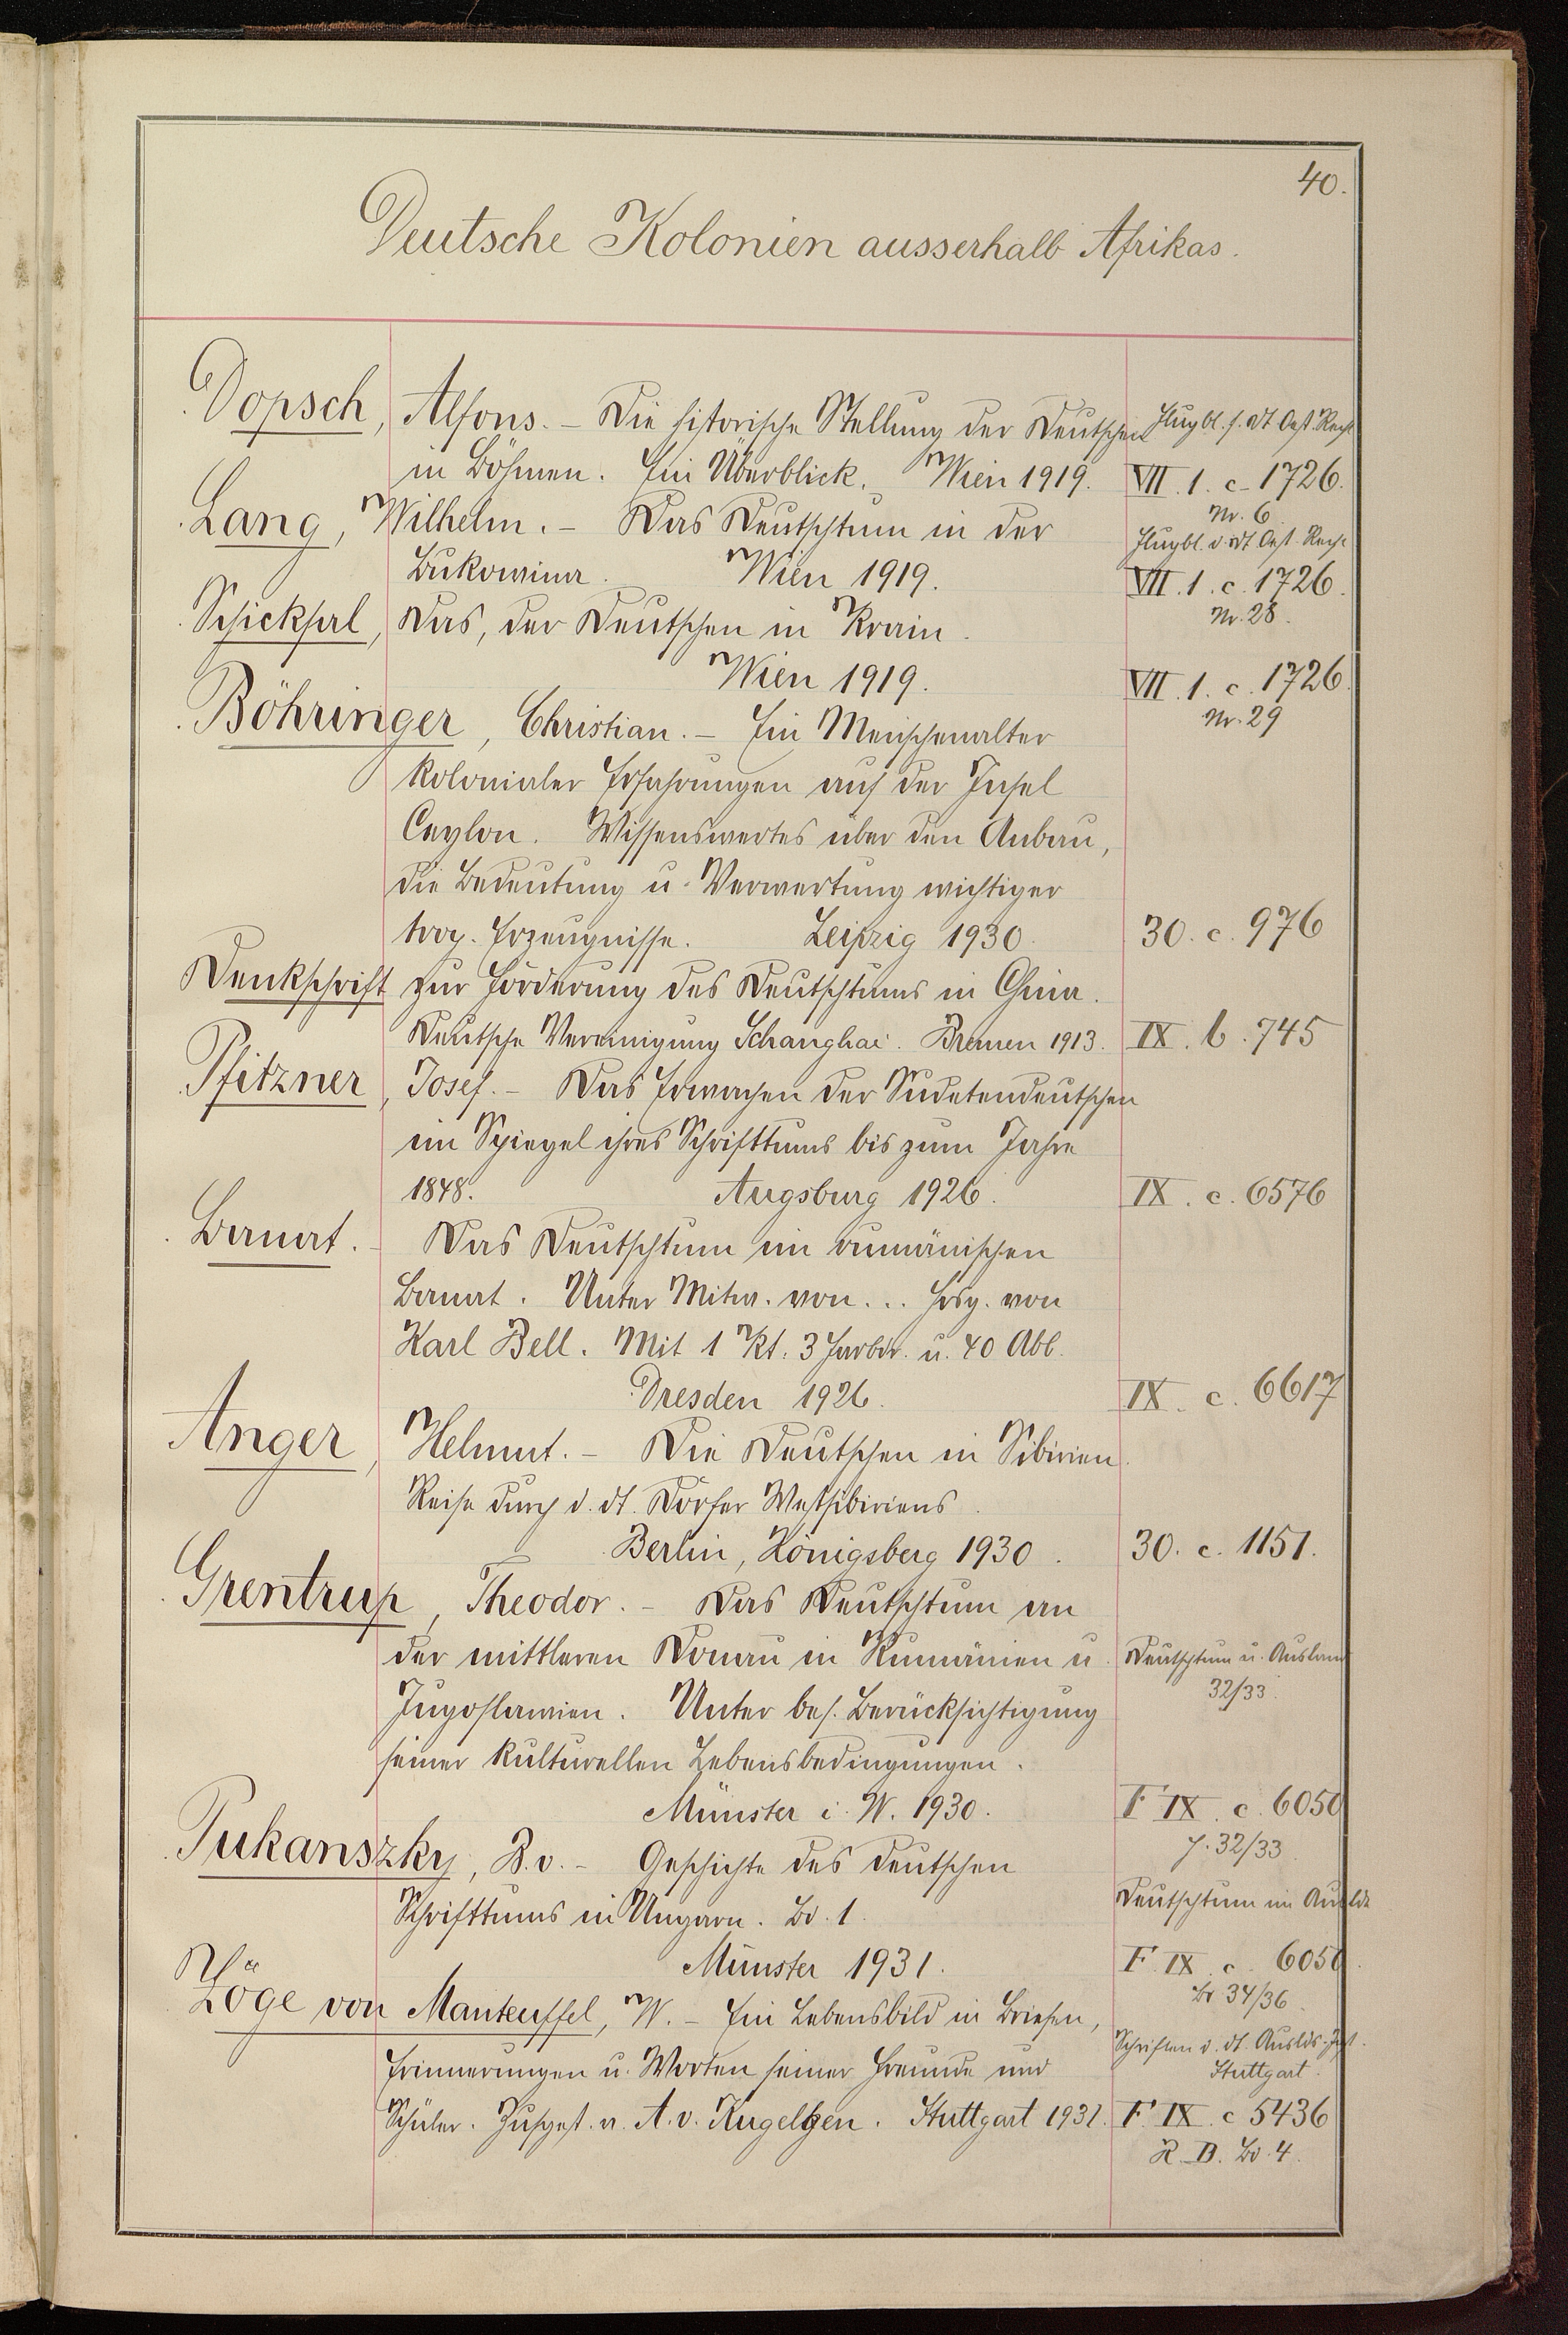 40.
Deutsche Kolonien ausserhalb Afrikas.
Dopsch, Alfons. – Die historische Stellung der Deutschen Flugbl. f. dt Oest. Recht
in Böhmen. Ein Überblick. Wien 1919. VII. 1. c. 1726.
Nr. 6
Lang, Wilhelm. – Das Deutschtum in der Flugbl. f. dt Oest. Recht
Bukowina. Wien 1919. VII. 1. c. 1726.
Schicksal, Das, der Deutschen in Krain. Nr. 28.
Wien 1919. VII. 1. c. 1726.
Böhringer, Christian. – Ein Menschenalter Nr. 29
kolonialer Erfahrungen auf der Insel
Ceylon. Wissenswertes über den Anbau,
die Bedeutung u. Verwertung wichtiger
trop. Erzeugnisse. Leipzig 1930. 30. c. 976
Denkschrift zur Förderung des Deutschtums in China.
Deutsche Vereinigung Schanghai. Bremen 1913. IX. b. 745
Pfitzner, Josef. – Das Erwachen der Sudetendeutschen
im Spiegel ihres Schrifttums bis zum Jahre
1848. Augsburg 1926. IX. c. 6576
Banat. – Das Deutschtum im rumänischen
Banat. Unter Mitw. von... hrsg. von
Karl Bell. Mit 1 Kt. 3 Farbdr. u. 40 Abb.
Dresden 1926. IX. c. 6617
Anger, Helmut. – Die Deutschen in Sibirien.
Reise durch d. dt. Dörfer Westsibiriens.
Berlin, Königsberg 1930. 30. c. 1151.
Grentrup, Theodor. – Das Deutschtum an
der mittleren Donau in Rumänien u. Deutschtum u. Ausland
Jugoslawien. Unter bes. Berücksichtigung 32/33.
seiner kulturellen Lebensbedingungen.
Münster i. W. 1930. F IX. c. 6050
Pukanszky, B. v. – Geschichte des deutschen 32/33.
Schrifttums in Ungarn. Bd. 1. Deutschtum im Auslde
Münster 1931. F. IX. c. 6050.
Bd 34/36.
Zöge von Manteuffel, W. – Ein Lebensbild in Briefen,
Erinnerungen u. Worten seiner Freunde und Schriften d. dt. Auslds-Inst.
Stuttgart.
Schüler. Zusgest. v. A. v. Kugelgen. Stuttgart 1931. F. IX. c 5436
R. B. Bd. 4.